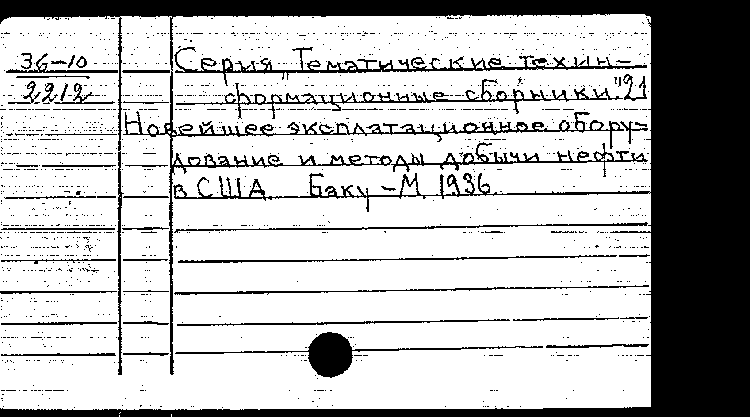 36-10
2212
Серия „Тематические техин-
формационные сборники" 21
Новейшее эксплатационное обору=
дование и методы добычи нефти
в США. Баку-М. 1936.